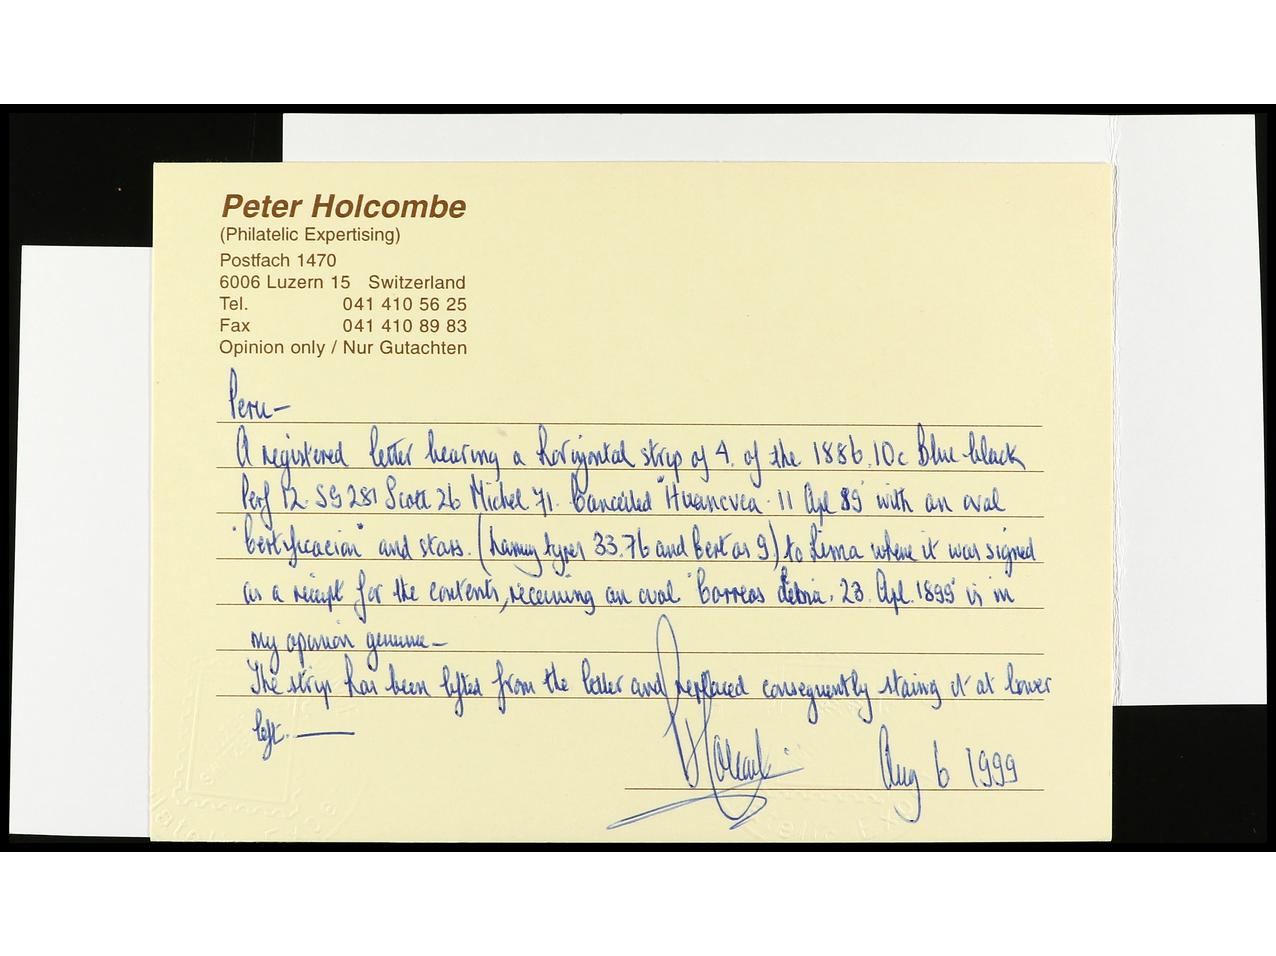 Peter Holcombe
(Philatelic Expertising)
Postfach 1470
6006 Luzern 15 Switzerland
Tel. 041 410 56 25
Fax 041 410 89 83
Opinion only / Nur Gutachten
Peru—
A registered letter bearing a horizontal strip of 4. of the 1886.10c Blue-black
Perf 12. SG 281 Scott 26 Michel 71. Cancelled "Huancvea · 11 Apl 89" with an oval
"Certificacion" and stars. ( types 33.76 and Cert as 9.) to Lima where it was signed
as a receipt for the contents, receiving an oval "Correos . 23. Apl. 1899" is in
my opinion genuine—
The strip has been lifted from the letter and replaced consequently staing it at lower
left.
Aug 6 1999